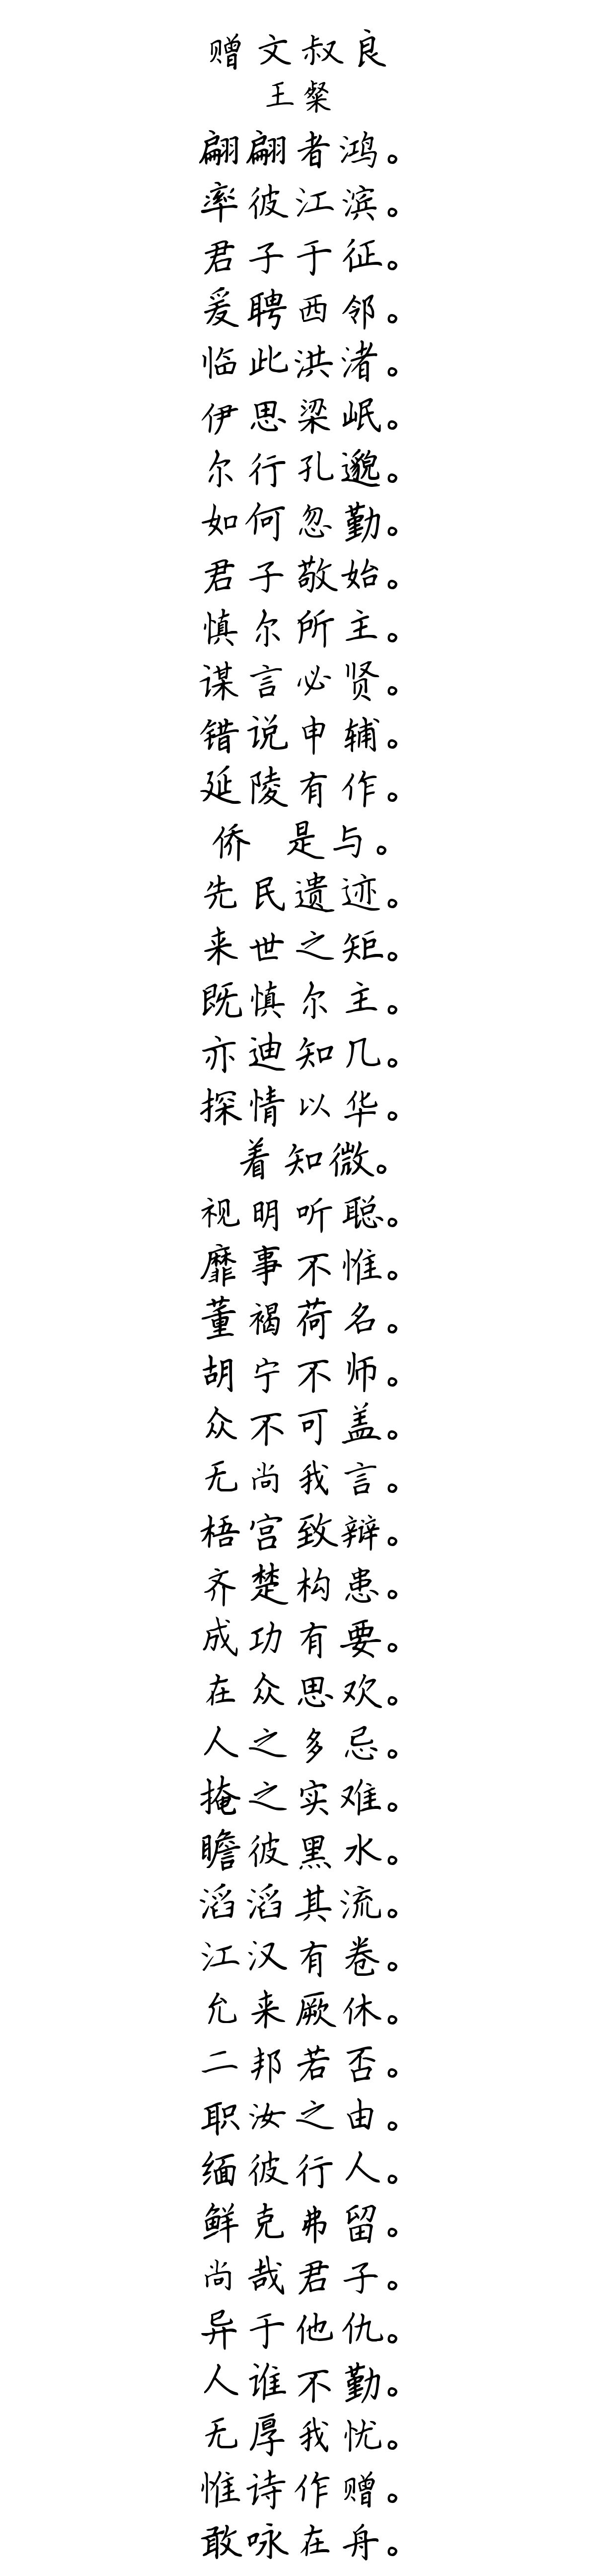 赠文叔良
王粲
翩翩者鸿。
率彼江滨。
君子于征。
爰聘西邻。
临此洪渚。
伊思梁岷。
尔行孔邈。
如何忽勤。
君子敬始。
慎尔所主。
谋言必贤。
错说申辅。
延陵有作。
侨 是与。
先民遗迹。
来世之矩。
既慎尔主。
亦迪知几。
探情以华。
着知微。
视明听聪。
靡事不惟。
董褐荷名。
胡宁不师。
众不可盖。
无尚我言。
梧宫致辩。
齐楚构患。
成功有要。
在众思欢。
人之多忌。
掩之实难。
瞻彼黑水。
滔滔其流。
江汉有卷。
允来厥休。
二邦若否。
职汝之由。
缅彼行人。
鲜克弗留。
尚哉君子。
异于他仇。
人谁不勤。
无厚我忧。
惟诗作赠。
敢咏在舟。